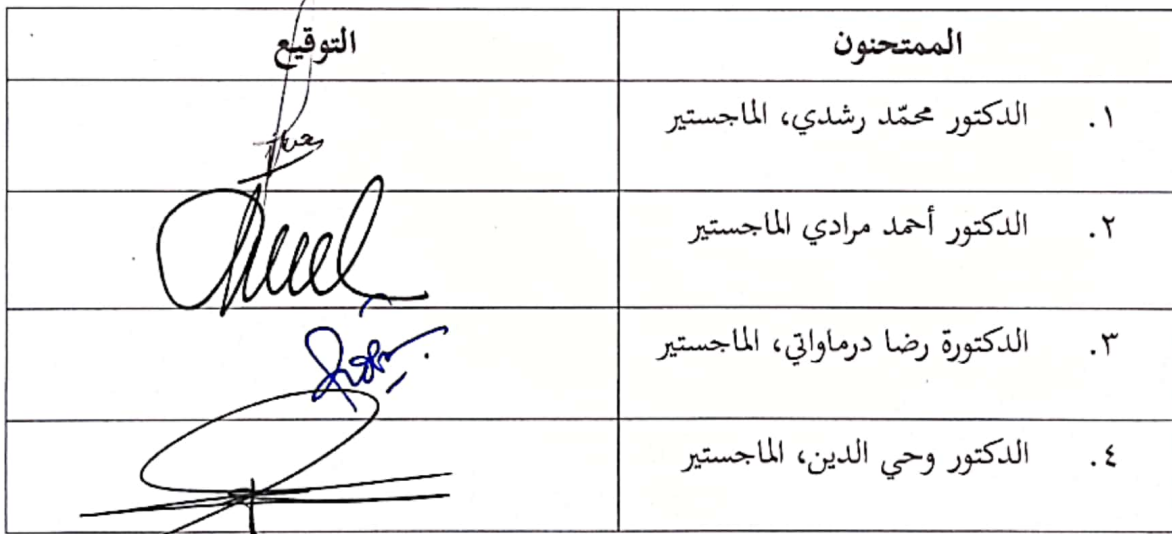 الممتحنون التوقيع
١. الدكتور محمّد رشدي، الماجستير
٢. الدكتور أحمد مرادي الماجستير
٣. الدكتورة رضا درماواتي، الماجستير
٤. الدكتور وحي الدين، الماجستير